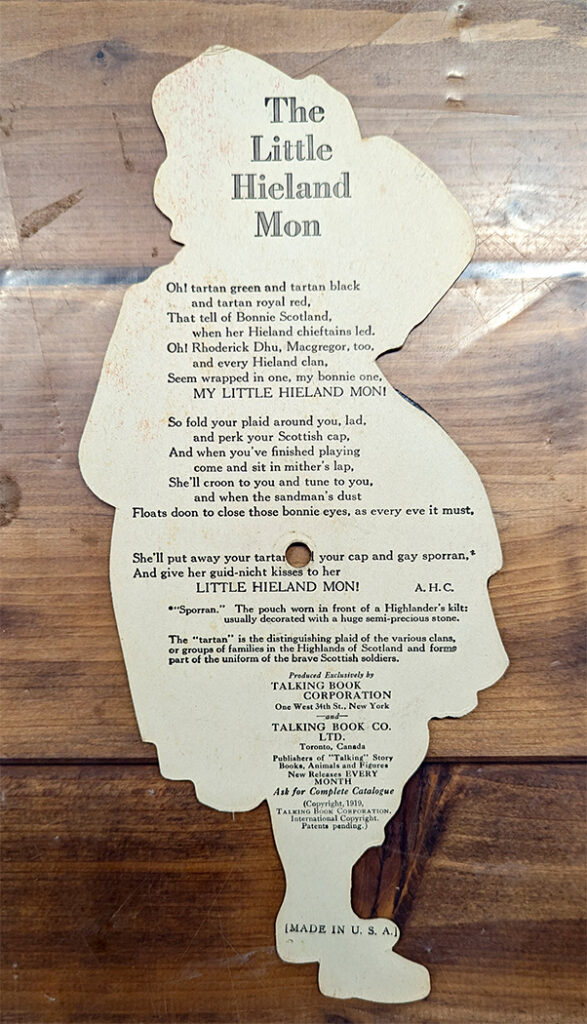 The
Little
Hieland
Mon
Oh! tartan green and tartan black
and tartan royal red,
That tell of Bonnie Scotland,
when her Hieland chieftains led.
Oh! Rhoderick Dhu, Macgregor, too,
and every Hieland clan,
Seem wrapped in one, my bonnie one,
MY LITTLE HIELAND MON!
So fold your plaid around you, lad,
and perk your Scottish cap,
And when you've finished playing
come and sit in mither's lap,
She'll croon to you and tune to you,
and when the sandman's dust
Floats doon to close those bonnie eyes, as every eve it must,
She'll put away your tartan your cap and gay sporran,*
And give her guid-nicht kisses to her
LITTLE HIELAND MON! A. H. C.
*"Sporran." The pouch worn in front of a Highlander's kilt:
usually decorated with a huge semi-precious stone.
The "tartan" is the distinguishing plaid of the various clans,
or groups of families in the Highlands of Scotland and forms
part of the uniform of the brave Scottish soldiers.
Produced Exclusively by
TALKING BOOK
CORPORATION
One West 34th St., New York
—and—
TALKING BOOK CO.
LTD.
Toronto, Canada
Publishers of "Talking" Story
Books, Animals and Figures
New Releases EVERY
MONTH
Ask for Complete Catalogue
(Copyright, 1919,
TALKING BOOK CORPORATION.
International Copyright.
Patents pending.)
[MADE IN U. S. A.]